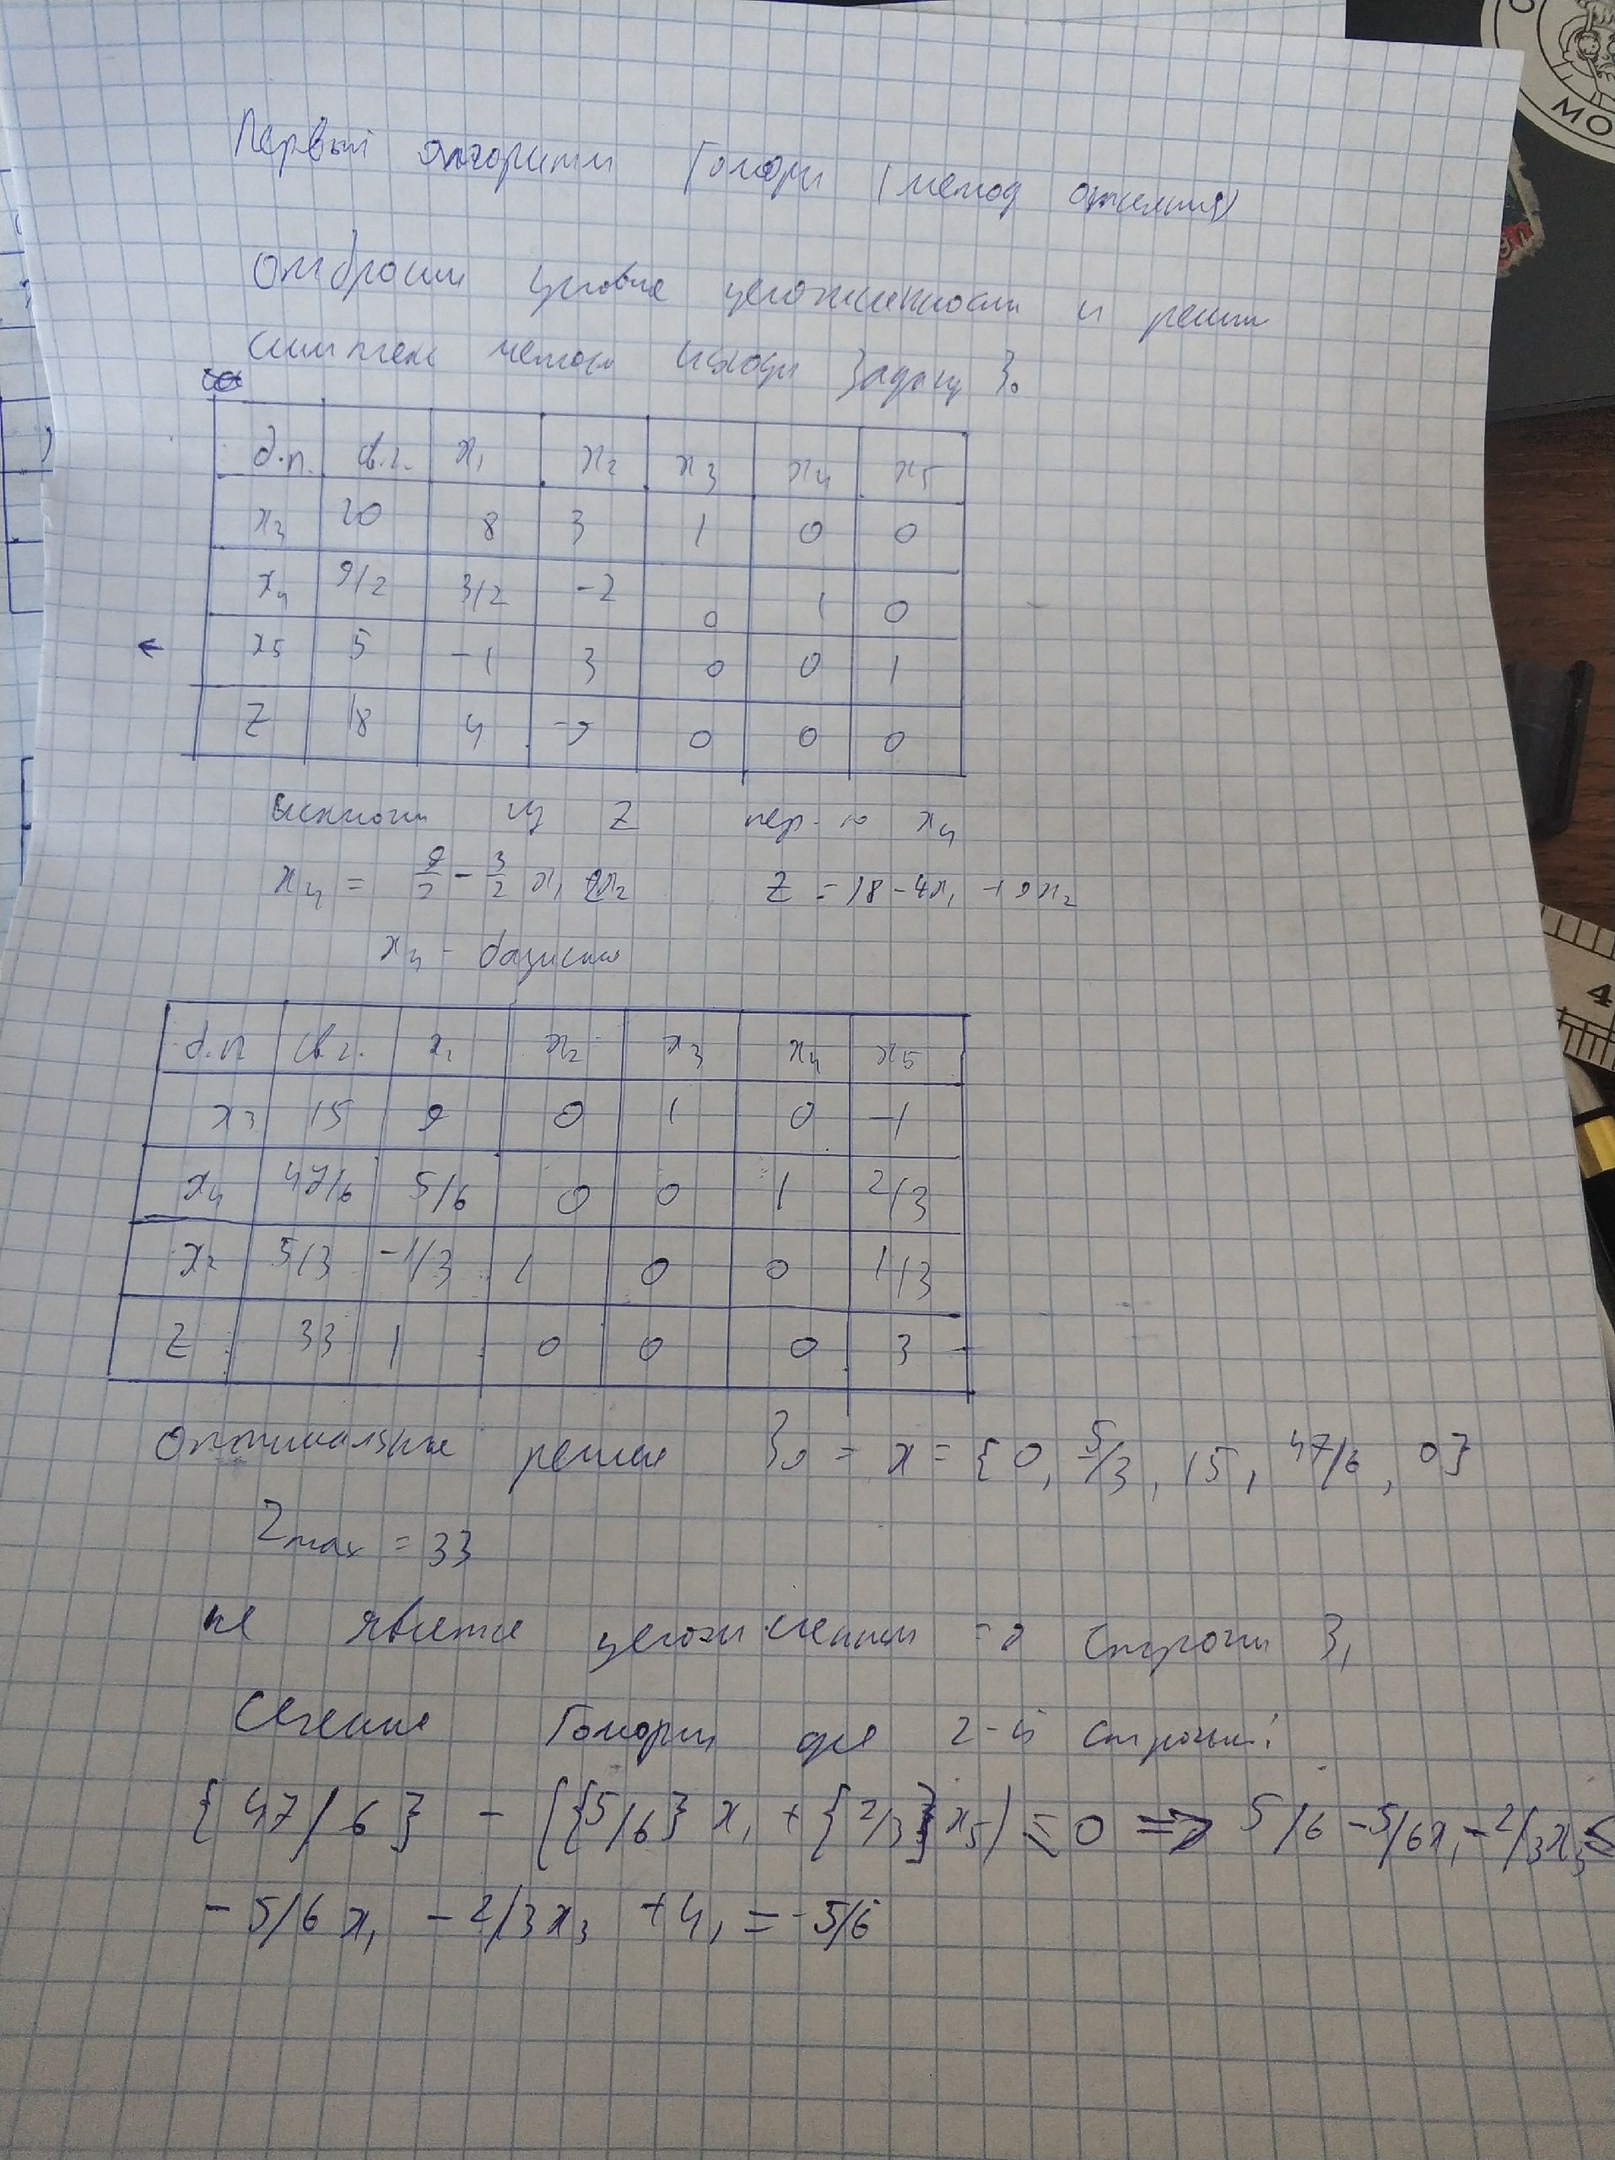 Первый алгоритм Гомори (метод отсечения)
Отбросим условие целочисленности и решим
симплекс методом задачу З₀
б.п. св.ч. x₁ x₂ x₃ x₄ x₅
x₃ 20 8 3 1 0 0
x₄ 9/2 3/2 -2 0 1 0
← x₅ 5 -1 3 0 0 1
Z 18 4 -9 0 0 0
исключим из Z пер-ю x₄
x₄ = 9/2 - 3/2 x₁ + 2x₂ Z = 18 - 4x₁ + 9x₂
x₄ - базисная
б.п. св.ч. x₁ x₂ x₃ x₄ x₅
x₃ 15 9 0 1 0 -1
x₄ 47/6 5/6 0 0 1 2/3
x₂ 5/3 -1/3 1 0 0 1/3
Z 33 1 0 0 0 3
Оптимальное решение З₀ = x = {0, 5/3, 15, 47/6, 0}
Zmax = 33
не является целочисленным => строим З₁
Сечение Гомори для 2-й строчки:
{47/6} - ({5/6} x₁ + {2/3} x₅) ≤ 0 => 5/6 - 5/6x₁ - 2/3x₅ ≤
- 5/6 x₁ - 2/3 x₃ + u₁ = -5/6
МО
4